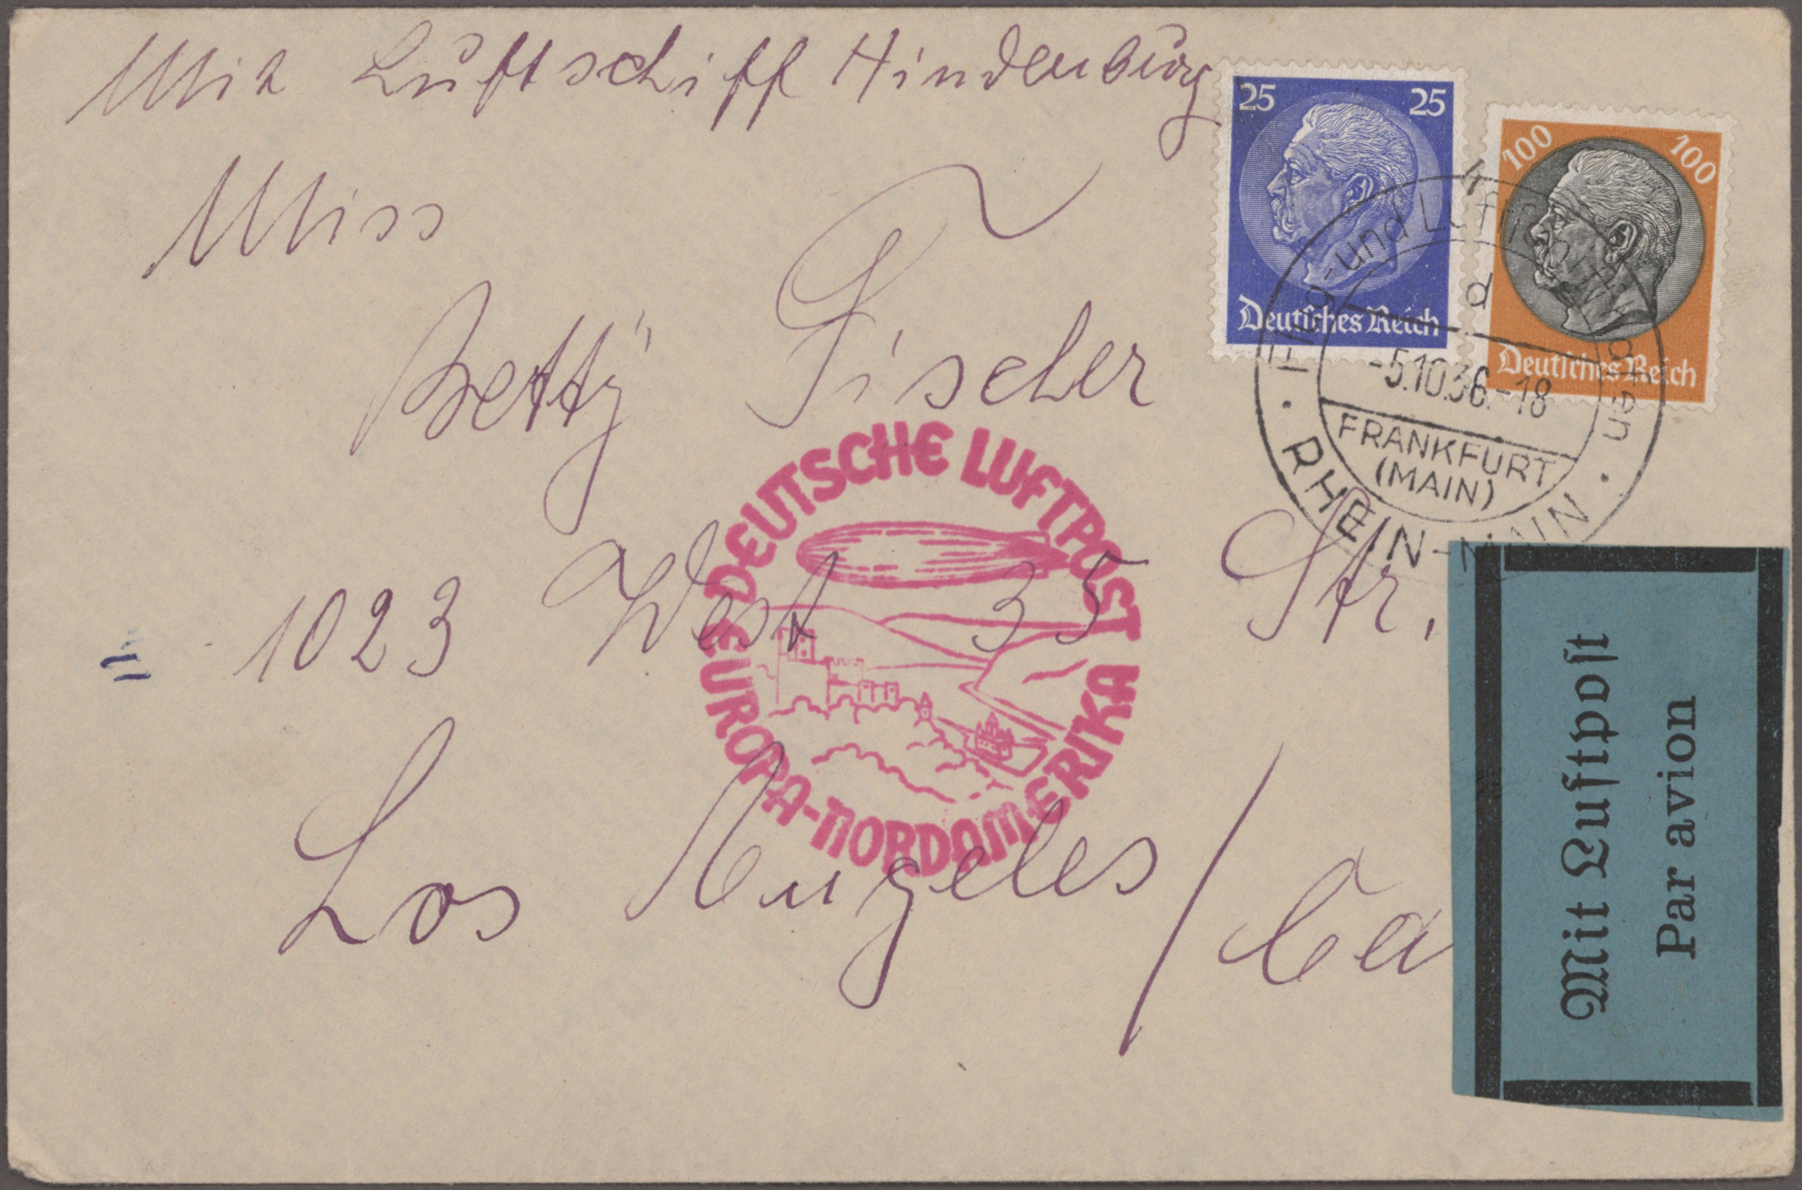 Mit Luftschiff Hindenburg
Miss
Betty Fischer
= 1023 West 35 Str.
Los Angeles / Ca
25 25
Deutsches Reich
100 100
Deutsches Reich
Flug- und Luftschiffhafen
d
-5.10.36.-18
FRANKFURT
(MAIN)
· RHEIN-MAIN ·
DEUTSCHE LUFTPOST
EUROPA-NORDAMERIKA
Mit Luftpost
Par avion